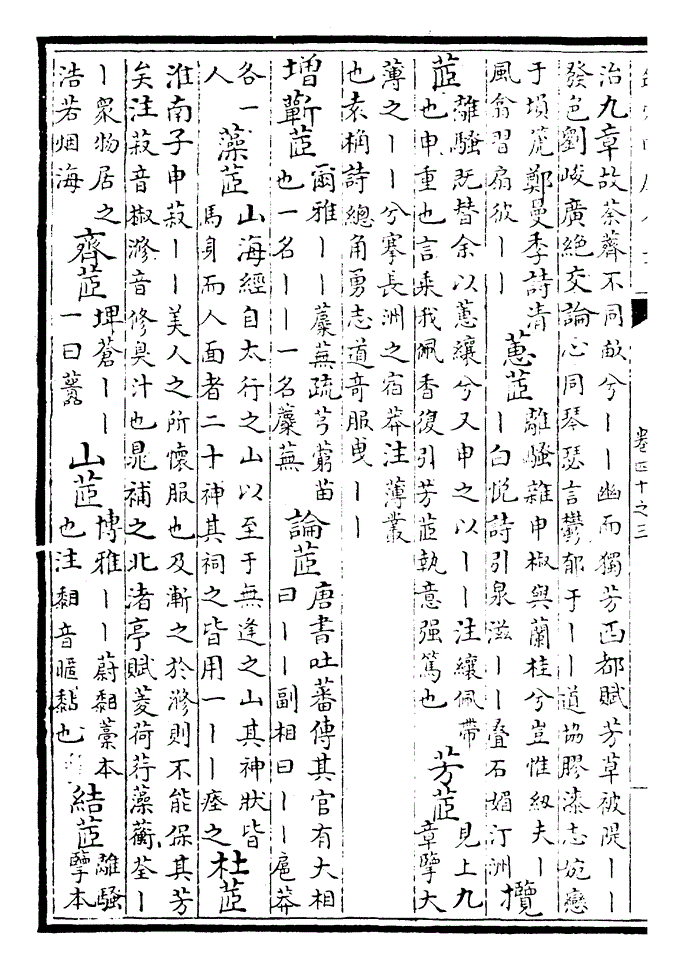 卷四十之三
治九章故荼薺不同畝兮丨丨幽而獨芳西都賦芳草被隄丨丨
發色劉峻廣絕交論心同琴瑟言鬱郁于丨丨道協膠漆志婉孌
于塤箎鄭曼季詩清
風翕習扇彼丨丨
蕙茝
離騷雜申椒與蘭桂兮豈惟紉夫丨
丨白悅詩引泉滋丨丨疊石媚汀洲
攬
茝
離騷既替余以蕙纕兮又申之以丨丨注纕佩帶
也申重也言乘我佩香復引芳茝執意强篤也
芳茝
見上九
章擥大
薄之丨丨兮搴長洲之宿莽注薄叢
也袁桷詩總角勇志道奇服曳丨丨
增蘄茝
爾雅丨丨蘪蕪疏芎藭苗
也一名丨丨一名蘪蕪
論茝
唐書吐蕃傳其官有大相
曰丨丨副相曰丨丨扈莽
各一
人
藻茝
山海經自太行之山以至于無逢之山其神狀皆
馬身而人面者二十神其祠之皆用一丨丨瘞之
杜茝
淮南子申菽丨丨美人之所懷服也及漸之於滫則不能保其芳
矣注菽音椒滫音修臭汁也晁補之北渚亭賦菱荷荇藻蘅荃丨
丨衆物居之
浩若烟海
齊茝
埤蒼丨丨
一曰虈
山茝
博雅丨丨蔚䵑藁本
也注䵑音暱黏也
結茝
離騷
擥本